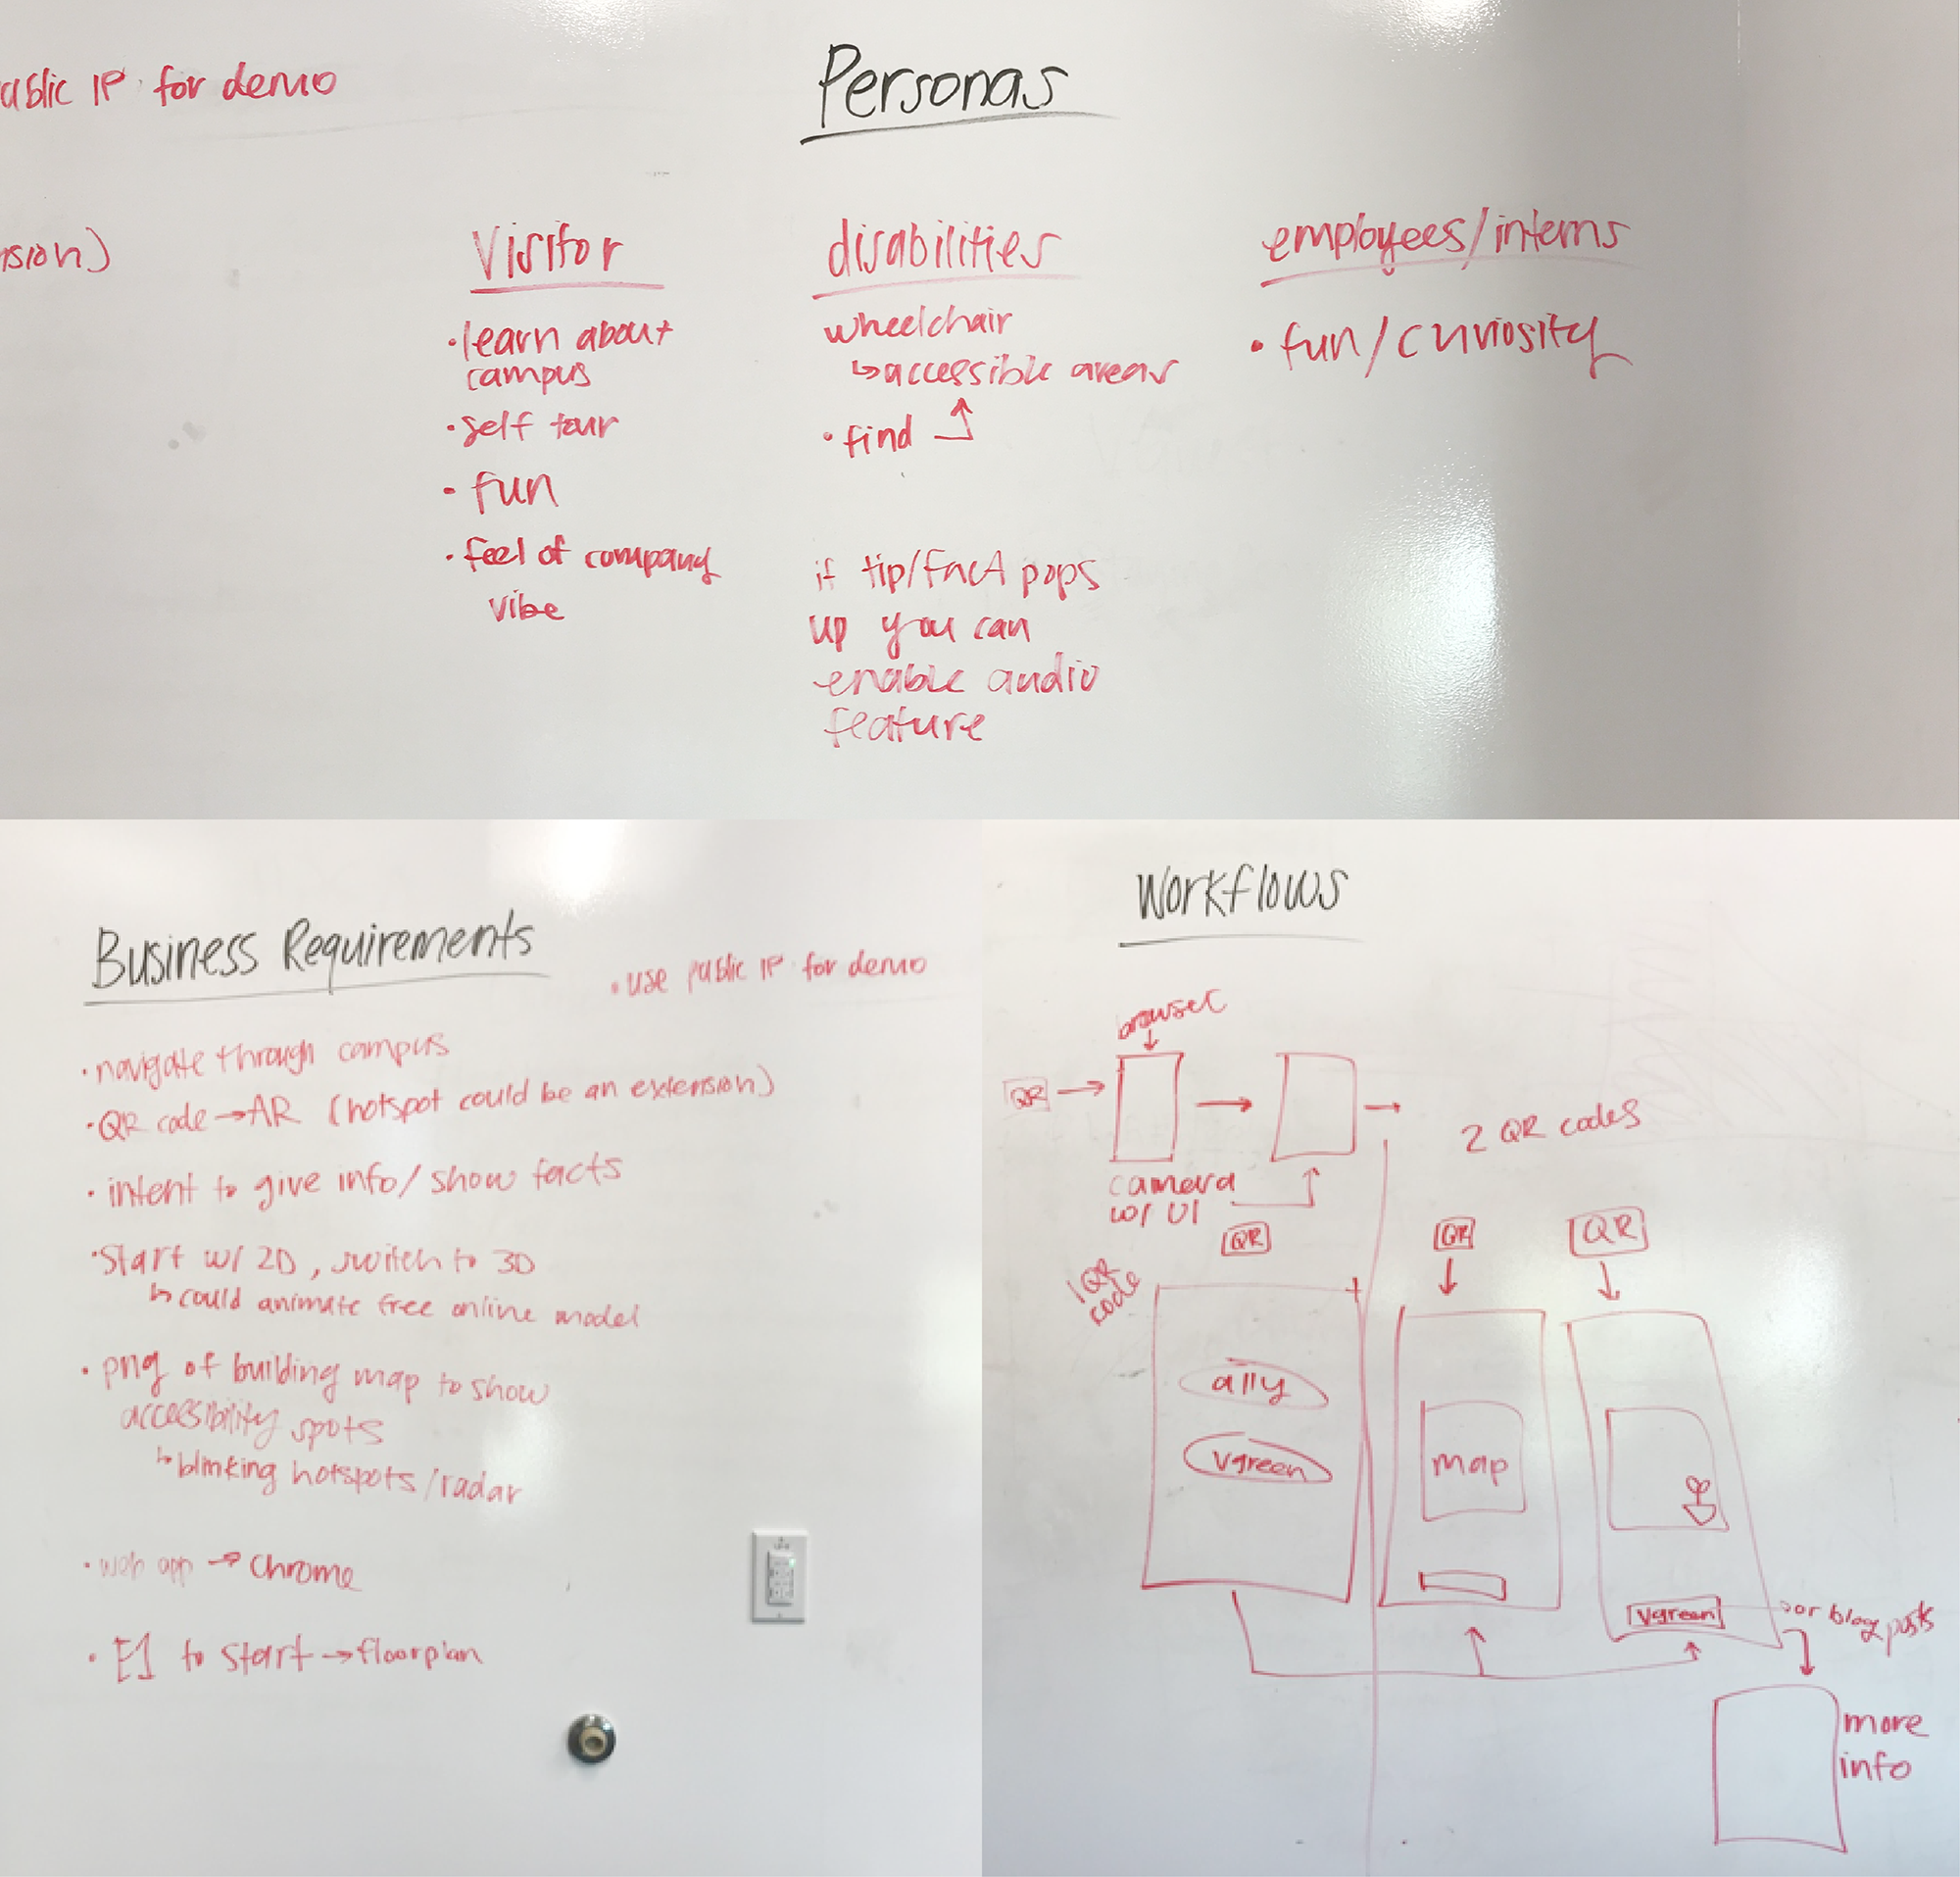 ublic IP for demo
nsion)
Personas
Visitor
• learn about
campus
• self tour
• fun
• feel of company
vibe
disabilities
wheelchair
↳ accessible areas
• find
if tip/fact pops
up you can
enable audio
feature
employees/interns
• fun/curiosity
Business Requirements
• use public IP for demo
• navigate through campus
• QR code → AR (hotspot could be an extension)
• intent to give info/show facts
• Start w/ 2D, switch to 3D
↳ could animate free online model
• png of building map to show
accessibility spots
↳ blinking hotspots/radar
• web app → Chrome
• E1 to start → floorplan
Workflows
browser
QR
camera
w/ UI
QR
1 QR
code
a11y
vgreen
2 QR codes
QR
map
QR
vgreen
or blog posts
more
info